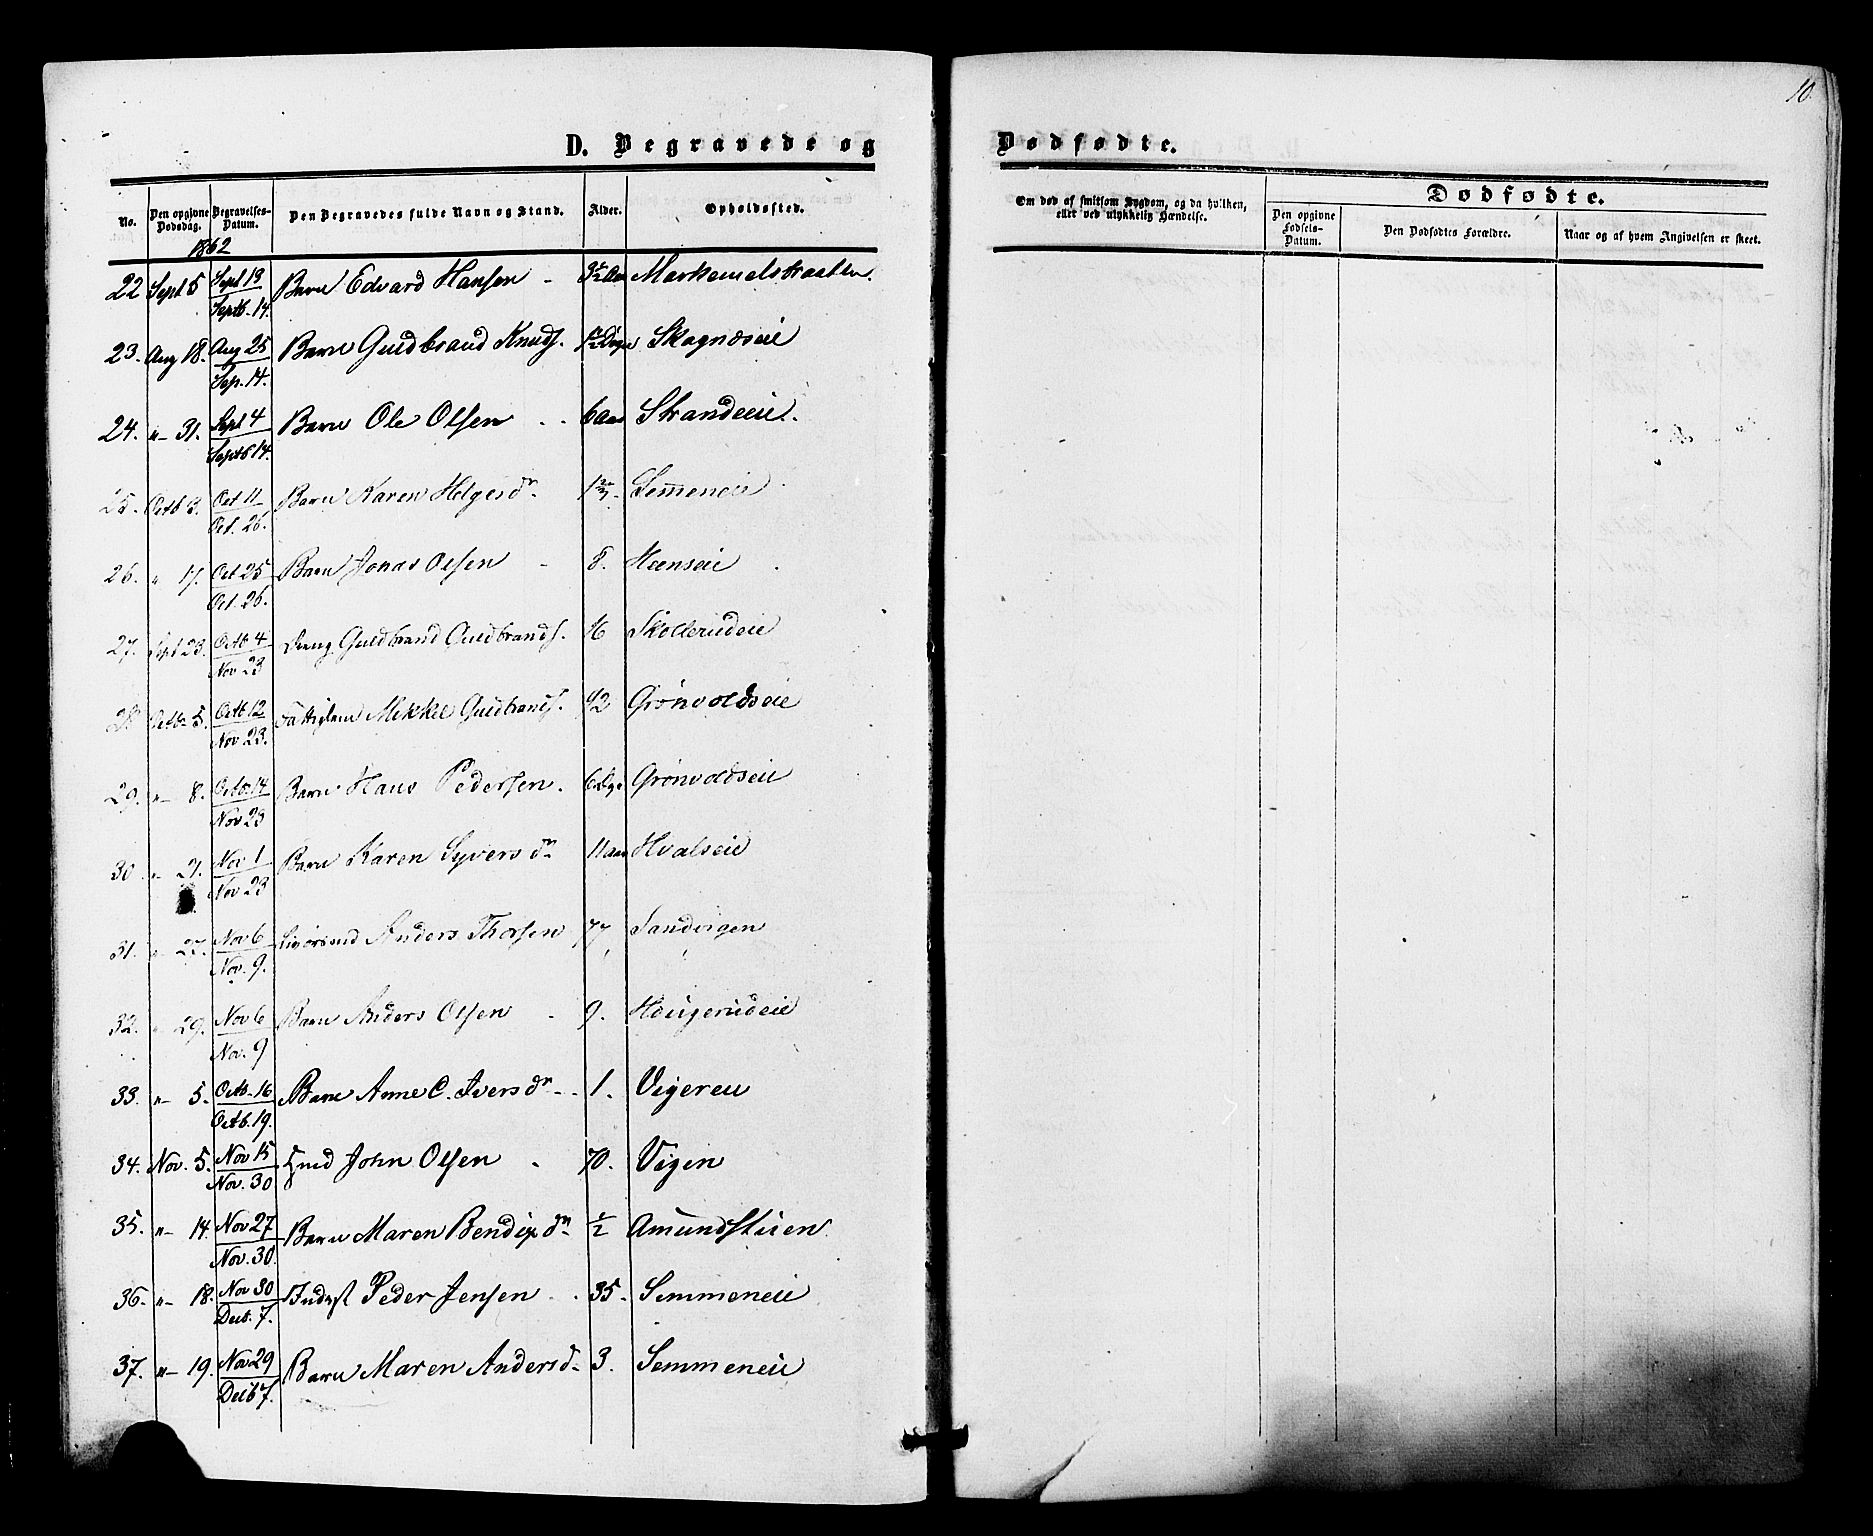 10.
D. Begravede og Dødfødte.
No. Den opgivne Dødsdag. Begravelses-Datum. Den Begravedes fulde Navn og Stand. Alder. Opholdssted. Om død af smitsom Sygdom, og da hvilken, eller ved ulykkelig Hændelse. Dødfødte. Den opgivne Fødsels-Datum. Den Dødfødtes Forældre. Naar og af hvem Angivelsen er skeet.
1862
22 Sept 5 Sept 13 Septb. 14. Barn Edvard Hansen 3½ Aar
23. Aug 18. Aug 25 Sep. 14. Barn Guldbrand Knuds. Skagnæseie
24. "- 31. Sept 4 Septb 14. Barn Ole Olsen 6 Aar Strandeie.
25. Octb 3. Oct 11 Oct. 26. Barn Karen Helgesdr. Semmeneie
26. " 17. Oct 25 Oct. 26. Barn Jonas Olsen 8. Heenseie
27. Sept 23. Octb 4 Nov 23 Dreng Guldbrand Guldbrands. 16 Skollerudeie
28 Octb. 5. Octb 12 Nov 23. Fattiglem Mikkel Guldbrands. 42 Grønvoldseie
29. "- 8. Octb. 14 Nov 23 Barn Hans Pedersen. 6 Dge Grønvoldseie
30. "- 21. Nov 1 Nov 23 Barn Karen Syversdr 11 aar Hvalseie
31. " 27. Nov 6 Nov. 9. Anders Thorsen 77 Sandvigen
32. " 29. Nov 6 Nov. 9 Barn Anders Olsen 9. Hougerudeie
33. "- 5. Octb. 16 Octb. 19. Barn Anne C. Iversdr 1. Vigeren
34. Nov. 5. Nov 15 Nov. 30 John Olsen 70. Vigen
35. "- 14. Nov 27 Nov. 30. Barn Maren Bendixdr ½ Amundstuen.
36. "- 18. Nov 30 Decb. 7. Inderst Peder Jensen 35. Semmeneie
37. "- 19. Nov 29 Decb 7. Barn Maren Andersd 3. Semmeneie